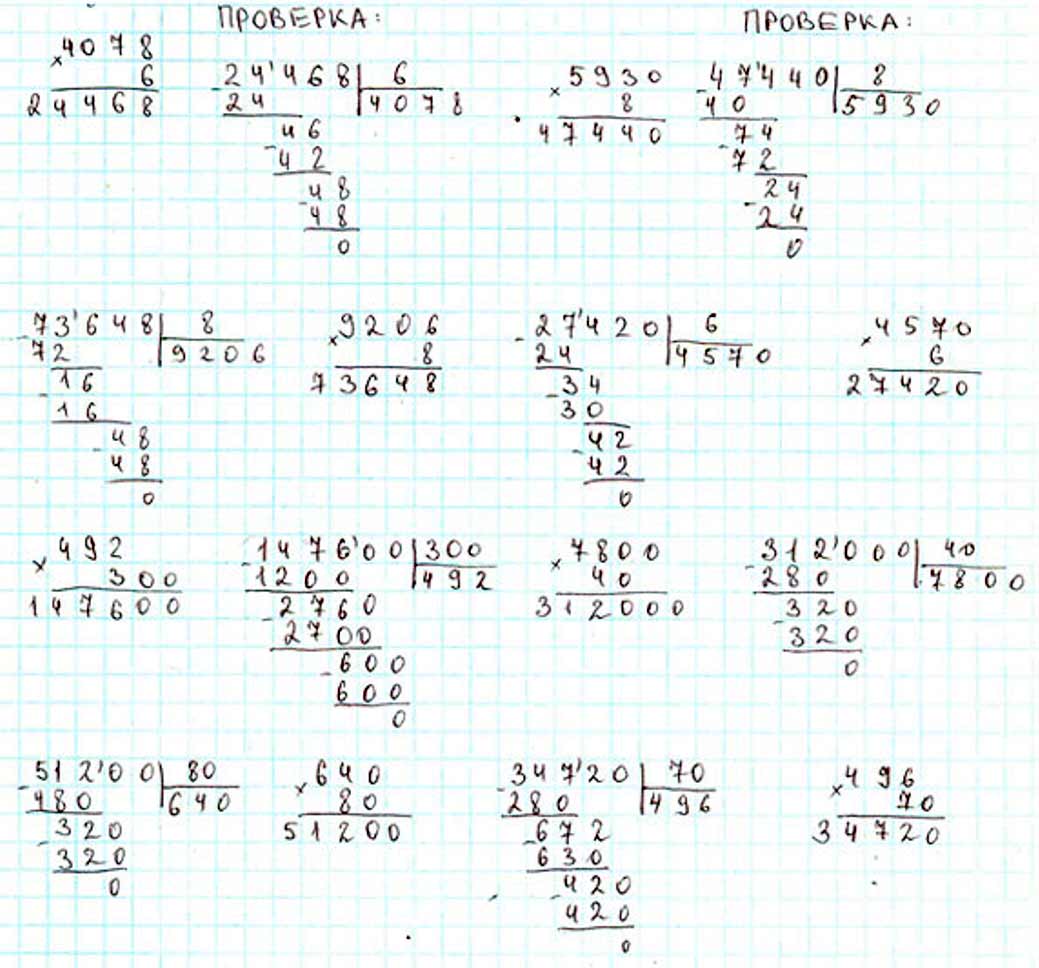 ПРОВЕРКА: ПРОВЕРКА:
×4078
6
24468
-24'468 | 6
24 4078
46
-42
48
-48
0
×5930
8
47440
-47'440 | 8
40 5930
74
-72
24
-24
0
-73'648 | 8
72 9206
16
-16
48
-48
0
×9206
8
73648
-27'420 | 6
24 4570
34
-30
42
-42
0
×4570
6
27420
×492
300
147600
-1476'00 | 300
1200 492
2760
-2700
600
-600
0
×7800
40
312000
-312'000 | 40
280 7800
320
-320
0
-512'00 | 80
480 640
320
-320
0
×640
80
51200
-347'20 | 70
280 496
672
-630
420
-420
0
×496
70
34720